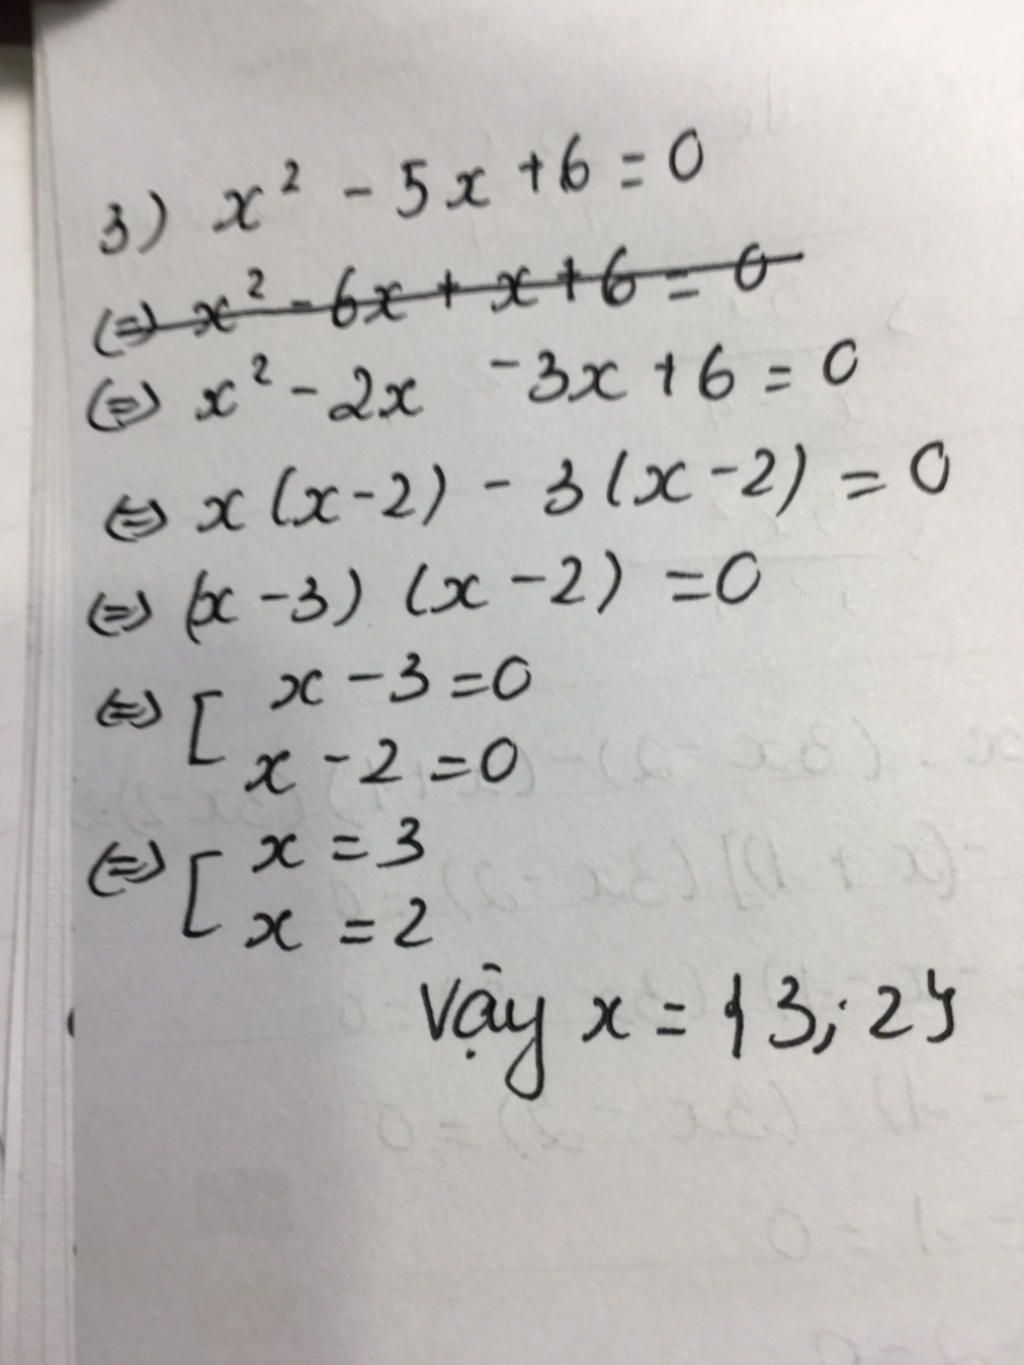 3) x² - 5x + 6 = 0
(=) x² - 6x + x + 6 = 0
(=) x² - 2x - 3x + 6 = 0
(=) x (x - 2) - 3 (x - 2) = 0
(=) (x - 3) (x - 2) = 0
(=) [ x - 3 = 0
x - 2 = 0
(=) [ x = 3
x = 2
Vậy x = {3; 2}